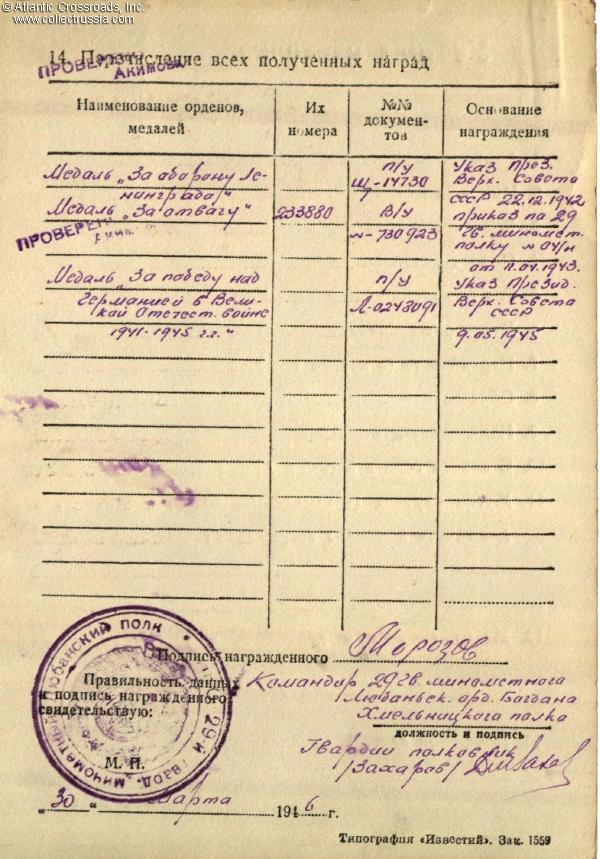 © Atlantic Crossroads, Inc.
www.collectrussia.com
14. Перечисление всех полученных наград
ПРОВЕРЕНО
Акимова
Наименование орденов, медалей
Их номера
№№ документов
Основание награждения
Медаль „За оборону Ленинграда"
п/у
Щ-14730
Указ През.
Верх. Совета
СССР 22.12.1942
Медаль „За отвагу"
233880
В/у
№-730923
приказ по 29
Гв. миномет.
полку № 04/н
от 11.04.1943.
ПРОВЕРЕНО
Медаль „За победу над
Германией в Вели-
кой Отечест. войне
1941-1945 г.г."
п/у
Л-0248091
Указ Презид.
Верх. Совета
СССР
9.05.1945
Подпись награжденного Морозов
Правильность данных
и подпись награжденного
свидетельствую:
Командир 29 гв. минометного
Любаньск. орд. Богдана
Хмельницкого полка
должность и подпись
Гвардии полковник
/Захаров/
М. П.
29й Гвард. Минометный Любанский полк
„30" марта 1946 г.
Типография «Известий». Зак. 1559